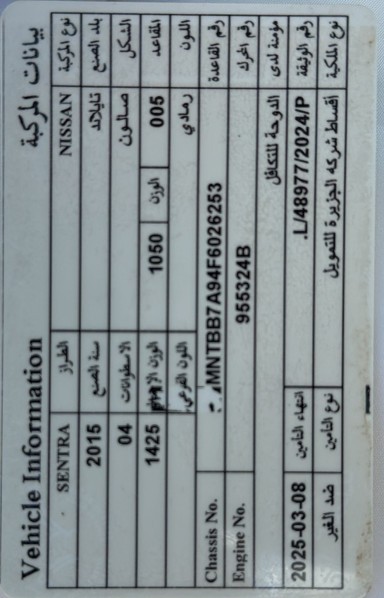 Vehicle Information بيانات المركبة
SENTRA الطراز NISSAN نوع المركبة
2015 سنة الصنع تايلاند بلد الصنع
04 الاسطوانات صالون الشكل
1425 الوزن 1050 الوزن 005 المقاعد
اللون الفرعي رمادي اللون
Chassis No. MNTBB7A94F6026253 رقم القاعدة
Engine No. 955324B رقم المحرك
الدوحة للتكافل مؤمنة لدى
2025-03-08 انتهاء التامين .L/48977/2024/P رقم الوثيقة
ضد الغير نوع التامين أقساط شركه الجزيرة للتمويل نوع الملكية